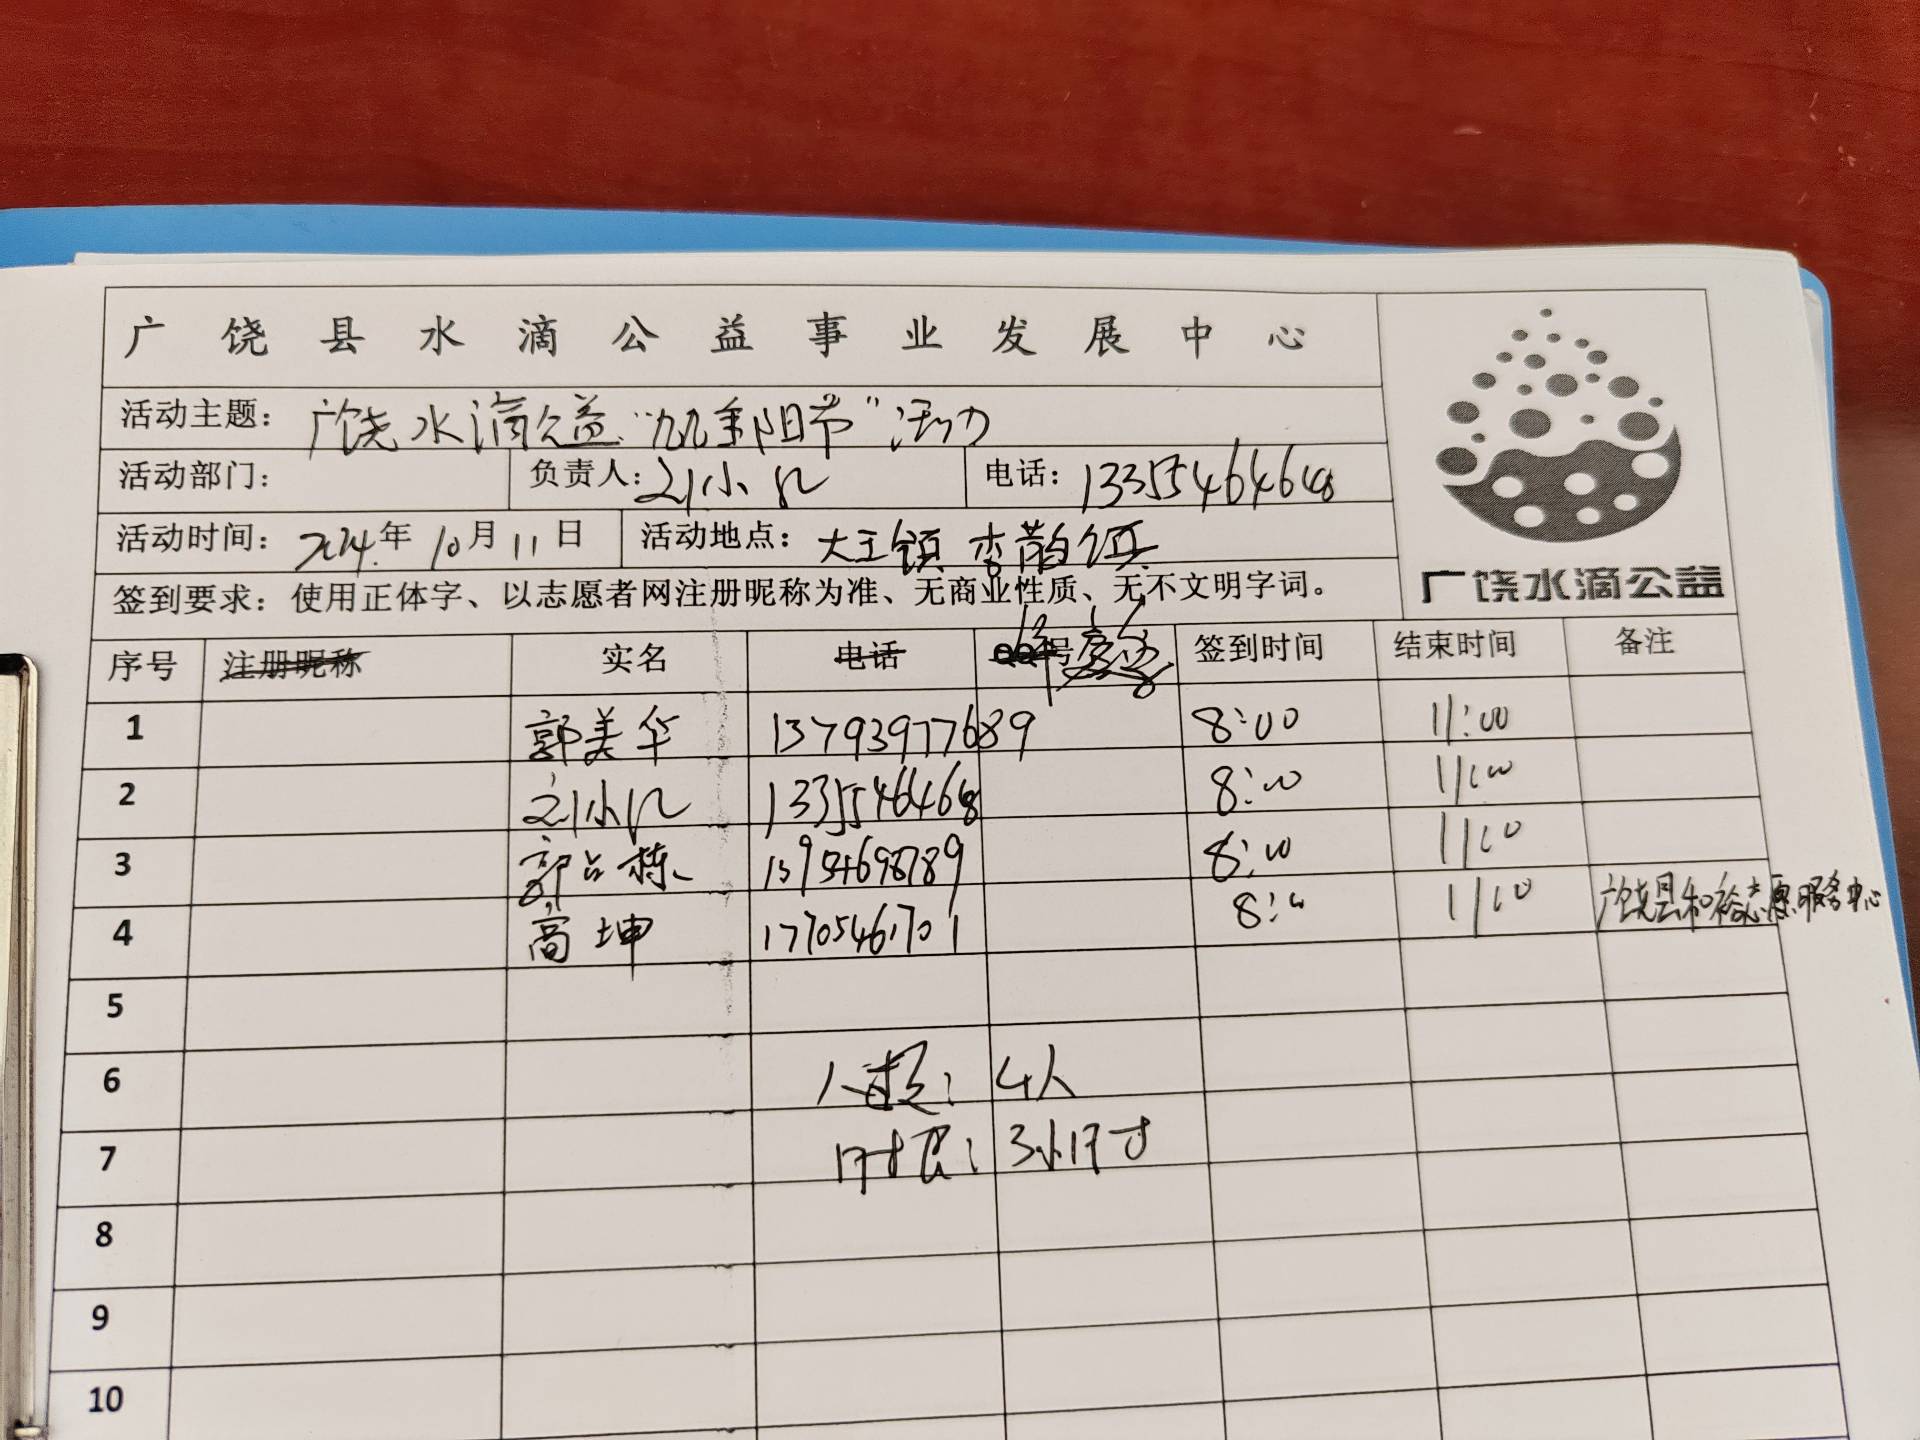 广饶县水滴公益事业发展中心
活动主题：广饶水滴公益"九九重阳节"活动
活动部门： 负责人：刘小红 电话：13355464648
活动时间：2024年10月11日 活动地点：大王镇
签到要求：使用正体字、以志愿者网注册昵称为准、无商业性质、无不文明字词。
广饶水滴公益
序号 注册昵称 实名 电话 QQ号 签到时间 结束时间 备注
1 郭美华 13793977689 8:00 11:00
2 刘小红 13355464648 8:00 11:00
3 8:00 11:00
4 高坤 17705461701 8:00 11:00 广饶县和裕志愿服务中心
5
6 4人
7 时长：3小时
8
9
10